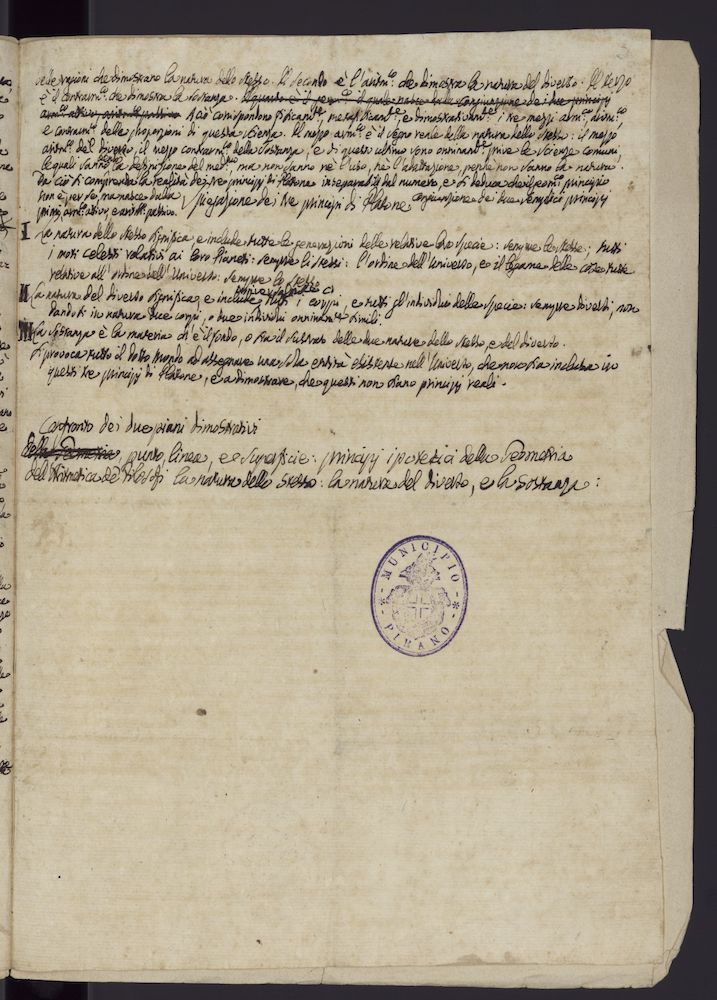 delle ragioni che dimostrano la natura dello stesso. Il secondo è l'aritm.co che dimostra la natura del diverso. Il terzo
è il contraarm.co che dimostra la sostanza.
A ciò corrispondono fisicam.te, metafisicam.te e dimostrativam.te i tre mezzi arm.co, aritm.co,
e contraarm.co delle proporzioni di questa scienza. Il mezzo arm.co è il segno reale della natura dello stesso: il mezzo
aritm.co del diverso, il mezzo contraarm.co della sostanza, e di questo ultimo sono onninam.te prive le scienze comuni,
le quali sanno la definizione del med.mo, ma non sanno nè l'uso, nè l'applicazione, perche non sanno la natura.
Da ciò si comprenda la realità dei tre principj di Platone inseparabili dal numero, e si deduca che il principio
non è per se, ma nasce dalla congiunzione dei due semplici principj
Spiegazione dei tre principj di Platone
primi, arm.co attivo, e aritm.co passivo.
I La natura dello stesso significa, e include tutte le generazioni delle relative loro specie: sempre le stesse; tutti
i moti celesti relativi ai loro Pianeti: sempre li stessi: l'ordine dell'Universo, e il legame delle cose tutte
relative all'ordine dell'Universo: sempre lo stesso
II La natura del diverso significa, e include universalmente tutti i corpi, e tutti gl'individui delle specie: sempre diversi, non
dandosi in natura due corpi, o due individui onninam.te simili.
III La sostanza è la materia ch'è il fondo, o sia il sustrato delle due nature dello stesso, e del diverso.
Si provoca tutto il dotto mondo ad assegnare una sola entità esistente nell'Universo, che non sia inclusa in
questi tre principj di Platone, e a dimostrare, che questi non siano principj reali.
Confronto dei due piani dimostrativi
Della Geometria, punto, linea, e superficie: principj ipotetici della Geometria
dell'Aritmetica de Filosofi la natura dello stesso: la natura del diverso, e la sostanza:
MUNICIPIO
PIRANO